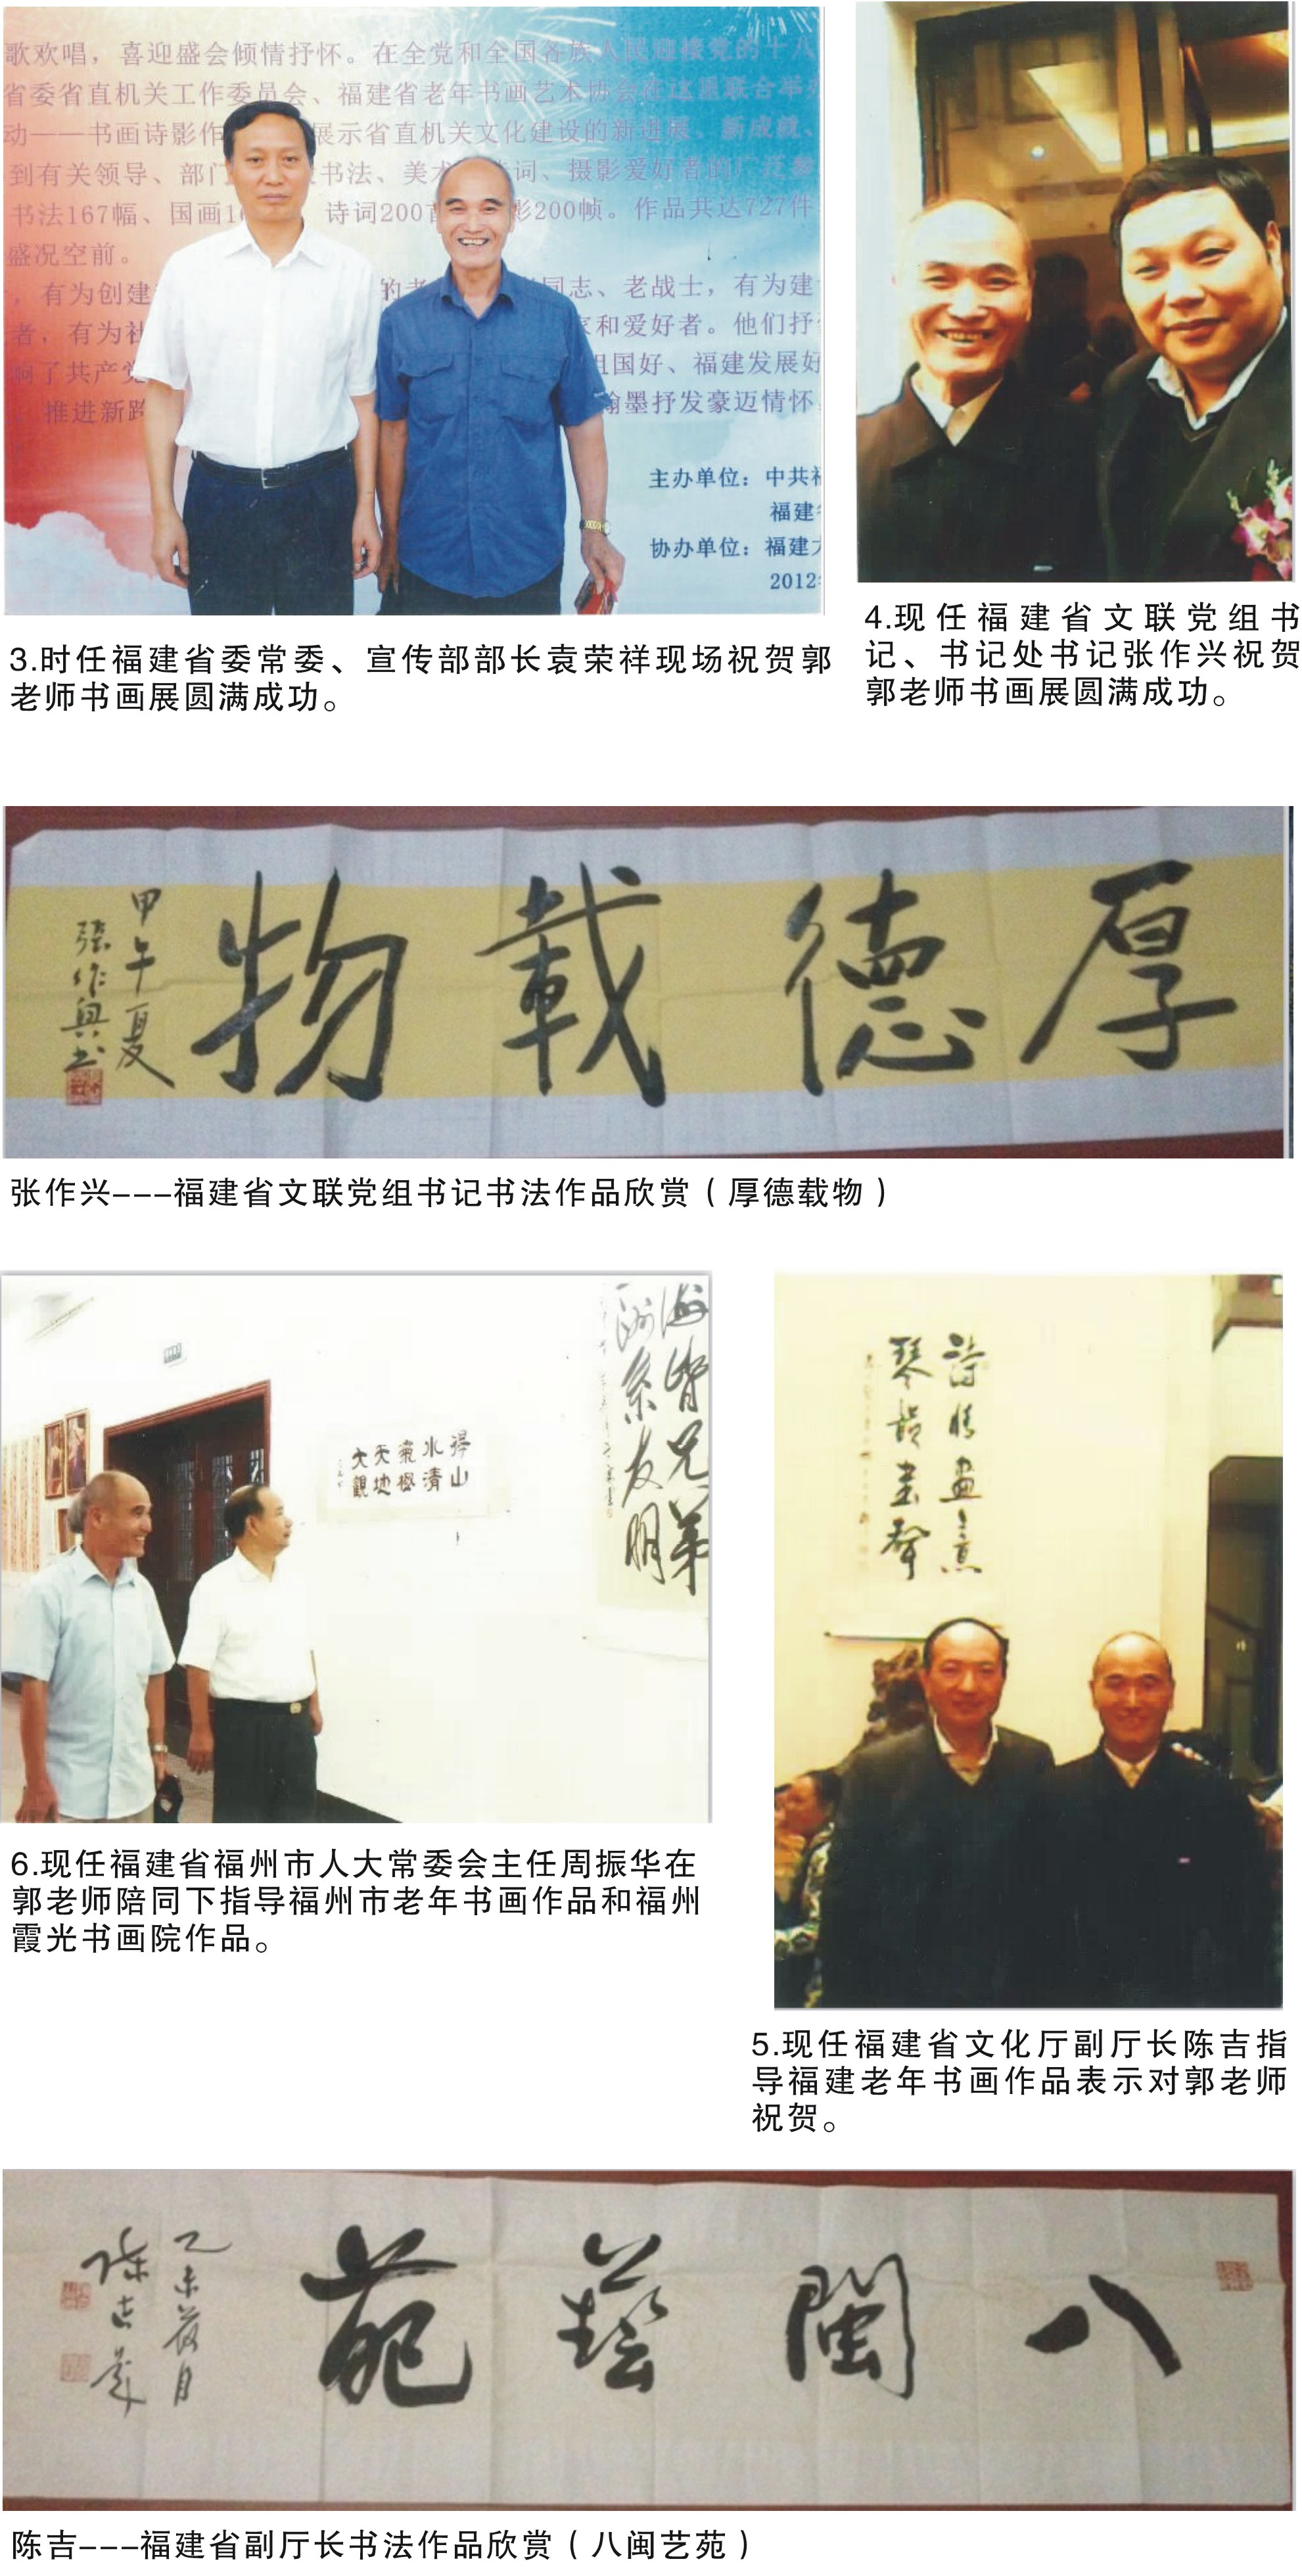 歌欢唱，喜迎盛会倾情抒怀。在全党和全国各族人民迎接党的十八
省委省直机关工作委员会、福建省老年书画艺术协会在这里联合举办
动——书画诗影作
展示省直机关文化建设的新进展、新成就、
到有关领导、部门
书法、美术
诗词、摄影爱好者的广泛参
书法167幅、国画1
诗词200首
影200帧。作品共达727件
盛况空前。
，有为创建
的老
同志、老战士，有为建
者，有为社
家和爱好者。他们抒
响了共产党
祖国好、福建发展好
推进新跨
翰墨抒发豪迈情怀
主办单位：中共福
福建省
协办单位：福建大
2012
3.时任福建省委常委、宣传部部长袁荣祥现场祝贺郭
老师书画展圆满成功。
4.现任福建省文联党组书
记、书记处书记张作兴祝贺
郭老师书画展圆满成功。
厚德载物
甲午夏
张作兴书
张作兴---福建省文联党组书记书法作品欣赏（厚德载物）
山
水清
天地
大观
海皆兄弟
洲系友朋
6.现任福建省福州市人大常委会主任周振华在
郭老师陪同下指导福州市老年书画作品和福州
霞光书画院作品。
詩情畫意
琴韻書聲
5.现任福建省文化厅副厅长陈吉指
导福建老年书画作品表示对郭老师
祝贺。
八閩藝苑
乙未
月
陈吉
陈吉---福建省副厅长书法作品欣赏（八闽艺苑）